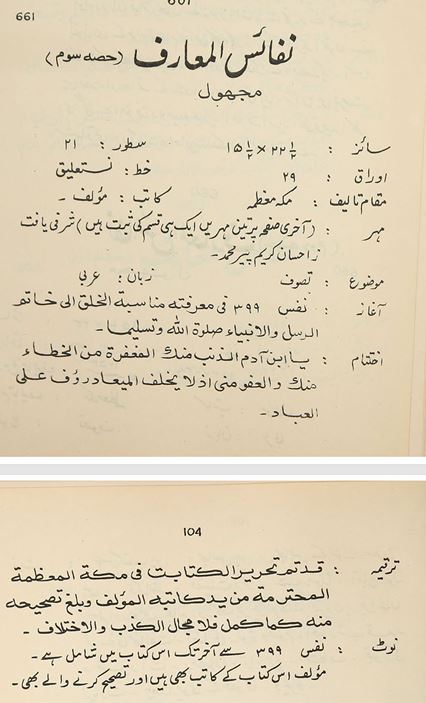 661
نفائس المعارف (حصه سوم)
مجهول
سائز : ۲۲½ × ۱۵½ سطور : ۲۱
اوراق : ۲۹ خط : نستعلیق
مقام تالیف : مکہ معظمہ کاتب : مؤلف ۔
مہر : (آخری صفحہ پر تین مہریں ایک ہی قسم کی ثبت ہیں) شرفی یافت
ز احسان کریم پیر محمد ۔
موضوع : تصوف زبان : عربی
آغاز : نفس ۳۹۹ فی معرفته مناسبة الخلق الی خاتم
الرسل والانبیاء صلوة الله وتسلیما ۔
اختتام : یا ابن آدم الذنب منك المغفرة من الخطاء
منك والعفو منی اذ لا یخلف المیعاد رؤف علی
العباد ۔
104
ترقیمہ : قد تم تحریر الکتابت فی مکة المعظمة
المحترمة من ید کاتبه المؤلف وبلغ تصحیحه
منه کما کمل فلا مجال الکذب والاختلاف ۔
نوٹ : نفس ۳۹۹ سے آخر تک اس کتاب میں شامل ہے ۔
مؤلف اس کتاب کے کاتب بھی ہیں اور تصحیح کرنے والے بھی ۔